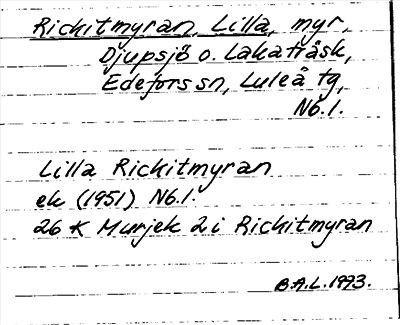 Rickitmyran, Lilla, myr,
Djupsjö o. Lakaträsk,
Edefors sn, Luleå tg,
Nb.l.
Lilla Rickitmyran
ek (1951) Nb.l.
26 K Murjek 2 i Rickitmyran
B.A.L. 1993.